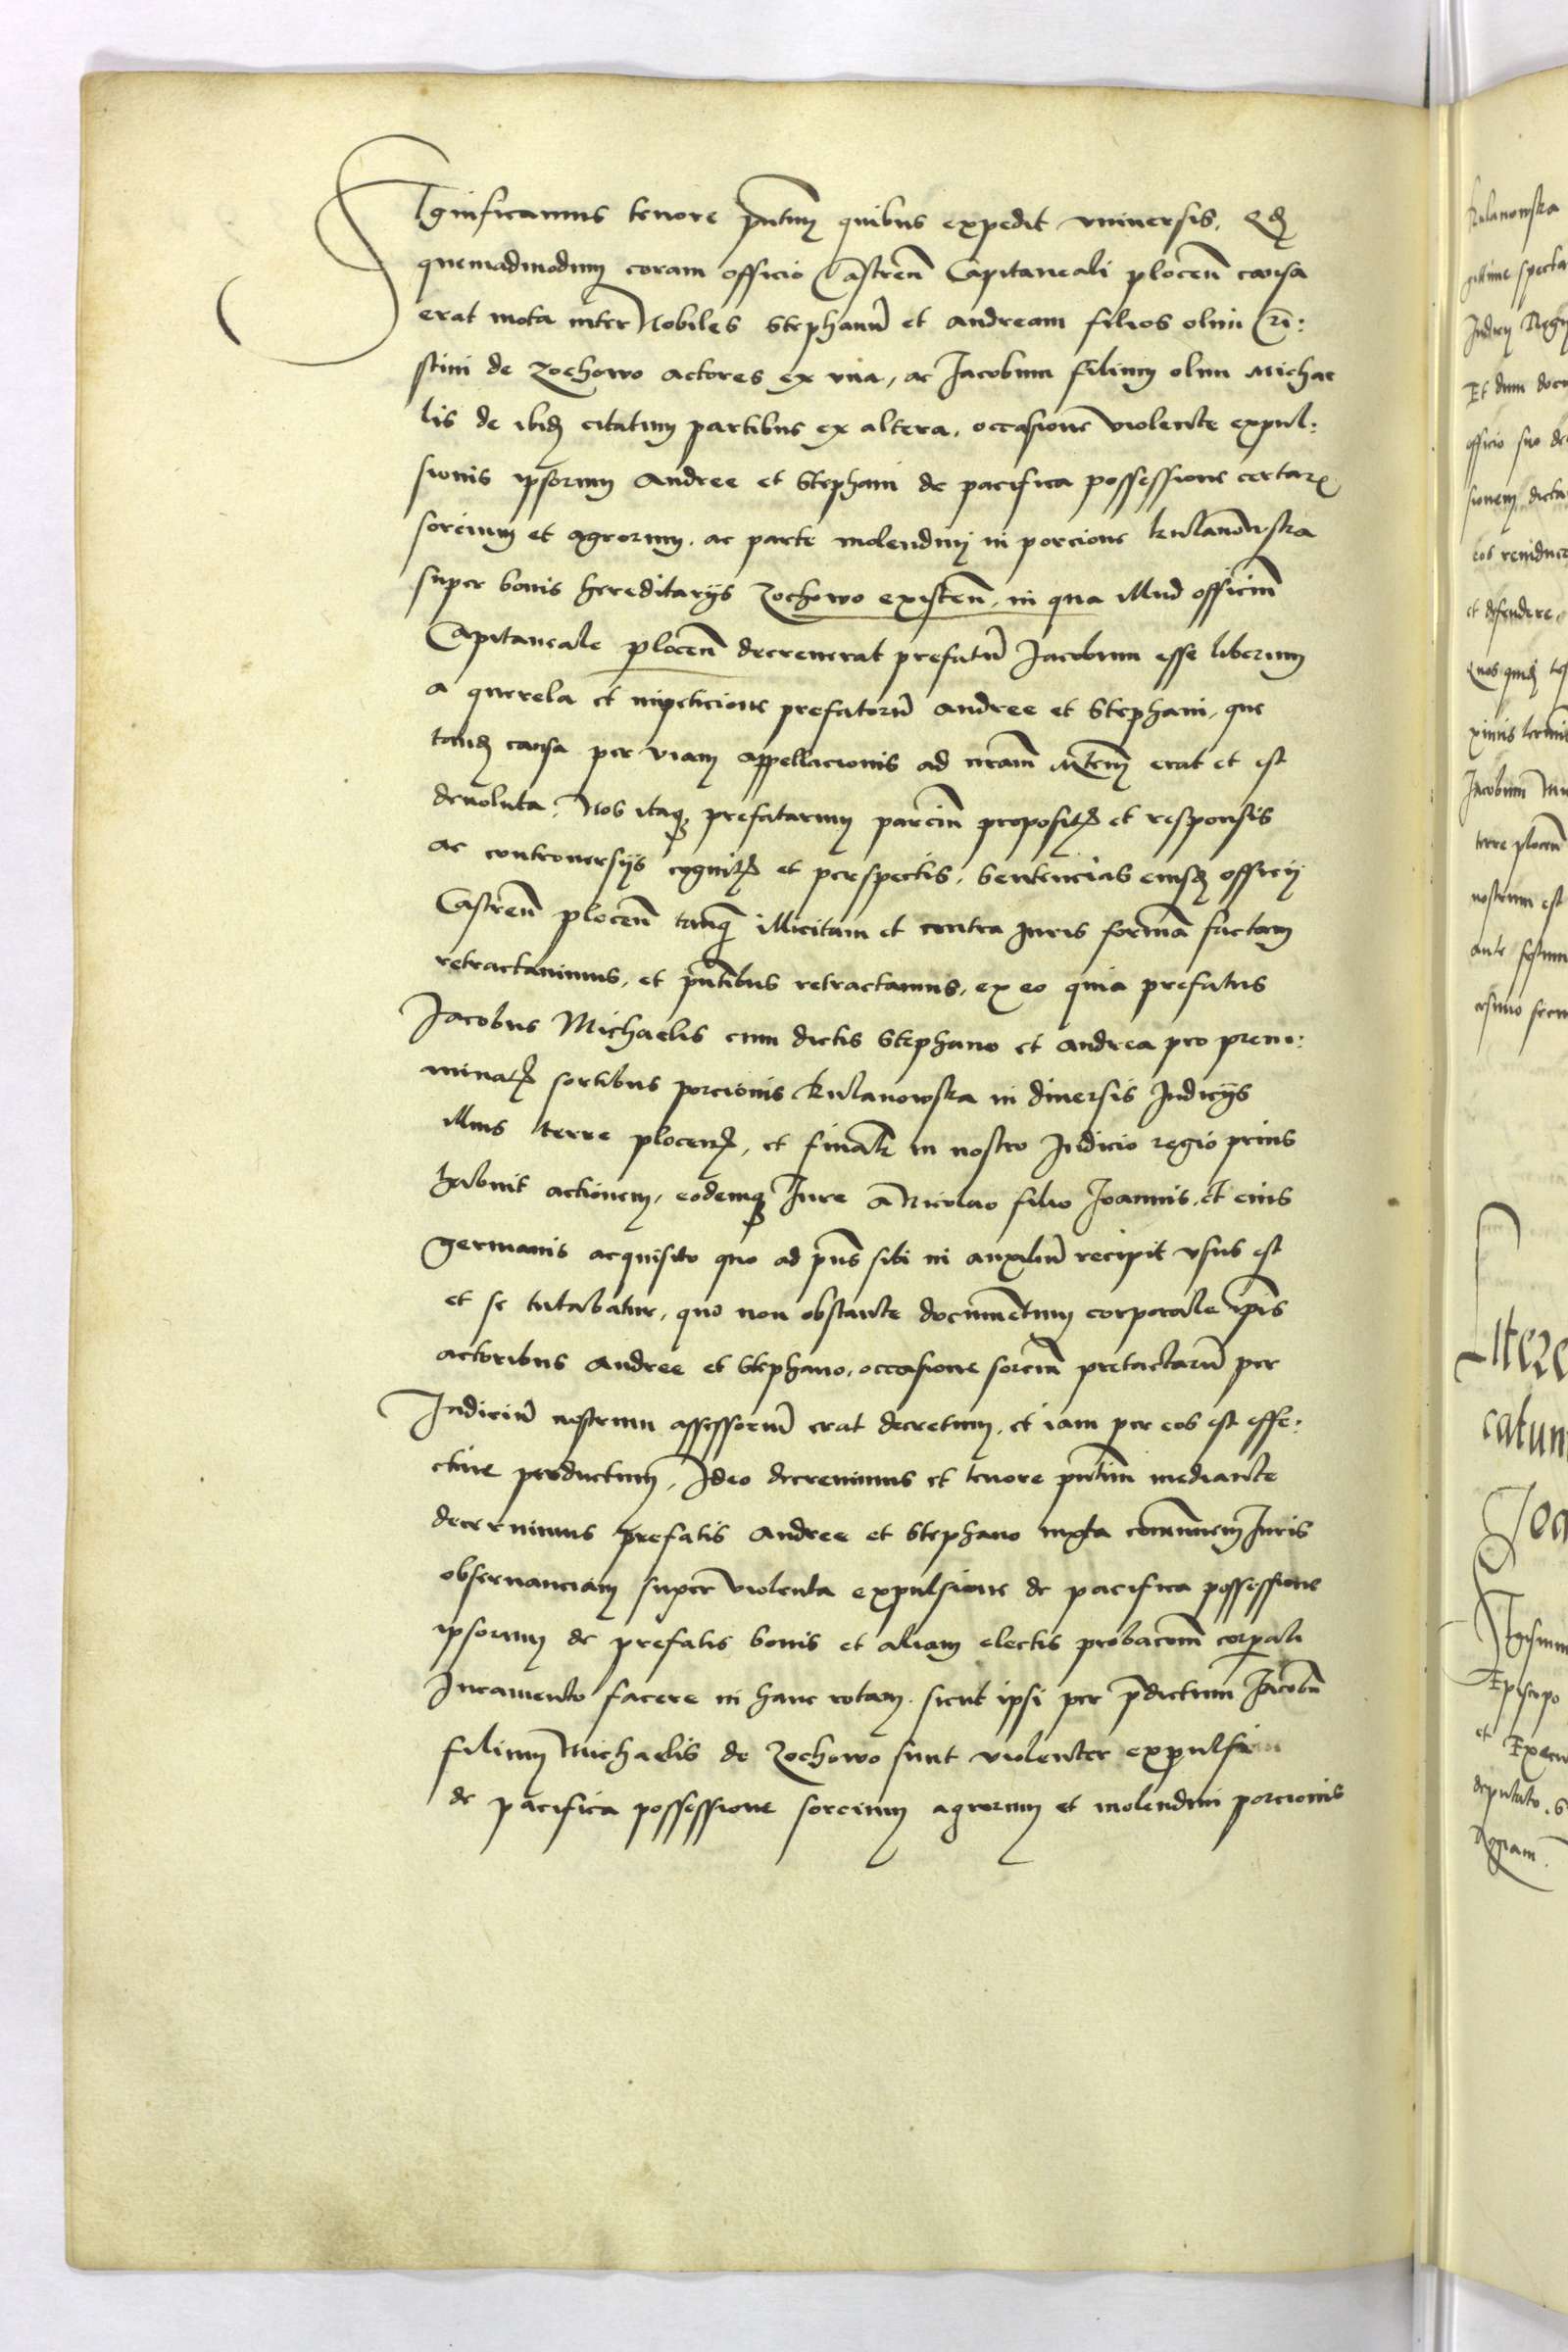 Significamus tenore pn̄tium quibus expedit vniuersis. Qđ
quemadmodum coram officio Castreñ Capitaneali ploceñ causa
erat mota inter Nobiles Stephanū et Andream filios olim Cri:
stini de Zochowo actores ex vna, ac Jacobum filium olim Michae
lis de ibiđ citatum partibus ex altera, occasione violente expul:
sionis ipsorum Andree et Stephani de pacifica possessione certarꝝ
sorcium et agrorum. ac parte molendinj in porcione kulanowska
super bonis hereditarijs Zochowo existeñ, in qua illud officiū
Capitaneale ploceñ decreuerat prefatū Jacobum esse liberum
a querela et impeticione prefatorū Andree et Stephani, que
tanđ causa per viam appellacionis ad nrām Mtem̄ erat et est
deuoluta. Nos itaqꝫ prefatarum parciū propositꝭ et responsis
ac controuersijs cognitꝭ et perspectis. Sentencias eiusđ officij
Castreñ ploceñ tanqꝫ illicitam et contra Juris formā factam
retractauimus, et pn̄tibus retractamus, ex eo quia prefatus
Jacobus Michaelis cum dictis Stephano et Andrea pro preno:
minatꝭ sortibus porcionis kulanowska in diuersis Judicijs
illius terre plocenꝭ, et finalꝭ in nostro Judicio regio prius
habuit actionem, eodemqꝫ Jure a Nicolao filio Joannis, et eius
germanis acquisito quo ad pn̄s sibi in auxiliū recipit vsus est
et se tutabatur, quo non obstante documentum corporale ipīs
actoribus Andree et Stephano, occasione sorciū pretactarū per
Judiciū nostrum assessorū erat decretum, et iam per eos est effe:
ctiue perductum, Ideo decreuimus et tenore pn̄tium mediante
decernimus prefatis Andree et Stephano iuxta cōmunem Juris
obseruanciam super violenta expulsione de pacifica possessione
ipsorum de prefatis bonis et aliam electis probacōem corpali
Juramento facere in hanc rotam. sicut ipsi per p̄dictum Jacobū
filium Michaelis de Zochowo sunt violenter expulsi
de pacifica possessione sorcium agrorum et molendini porcionis